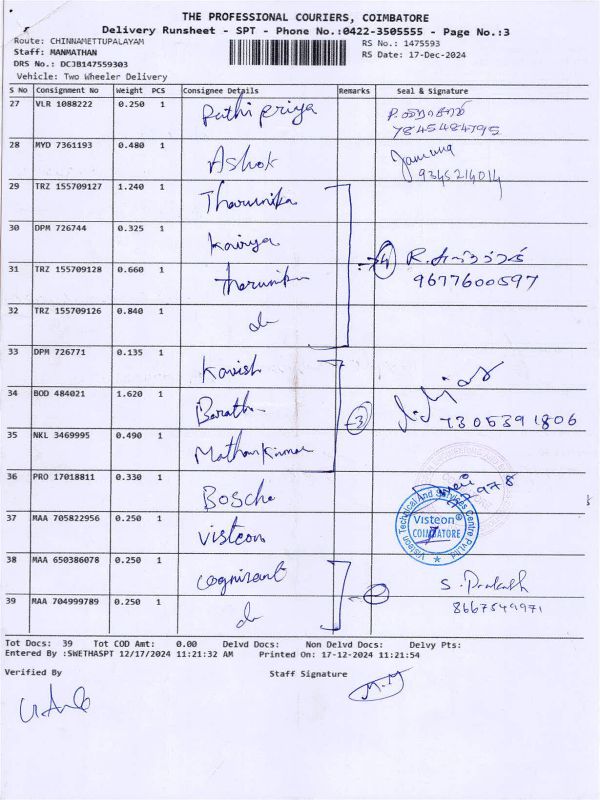 THE PROFESSIONAL COURIERS, COIMBATORE
Delivery Runsheet - SPT - Phone No.:0422-3505555 - Page No.:3
Route: CHINNAMETTUPALAYAM
RS No.: 1475593
Staff: MANMATHAN
RS Date: 17-Dec-2024
DRS No.: DCJB147559303
Vehicle: Two Wheeler Delivery
S No Consignment No Weight PCS Consignee Details Remarks Seal & Signature
27 VLR 1088222 0.250 1 Rathi priya
7845484795
28 MYD 7361193 0.480 1 Ashok Jamuna
9345214014
29 TRZ 155709127 1.240 1 Tharunika
30 DPM 726744 0.325 1 Kaviya 4
31 TRZ 155709128 0.660 1 tharunika 9677600597
32 TRZ 155709126 0.840 1 do
33 DPM 726771 0.135 1 Kavish
34 BOD 484021 1.620 1 Barath 3 7305391806
35 NKL 3469995 0.490 1 Mathan Kumar
36 PRO 17018811 0.330 1 Bosch
37 MAA 705822956 0.250 1 Visteon
Visteon Technical And Services Centre Pvt Ltd
Visteon®
COIMBATORE
38 MAA 650386078 0.250 1 Cognizant S. Prakash
39 MAA 704999789 0.250 1 do 8667549971
Tot Docs: 39 Tot COD Amt: 0.00 Delvd Docs: Non Delvd Docs: Delvy Pts:
Entered By :SWETHASPT 12/17/2024 11:21:32 AM Printed On: 17-12-2024 11:21:54
Verified By Staff Signature
M.M